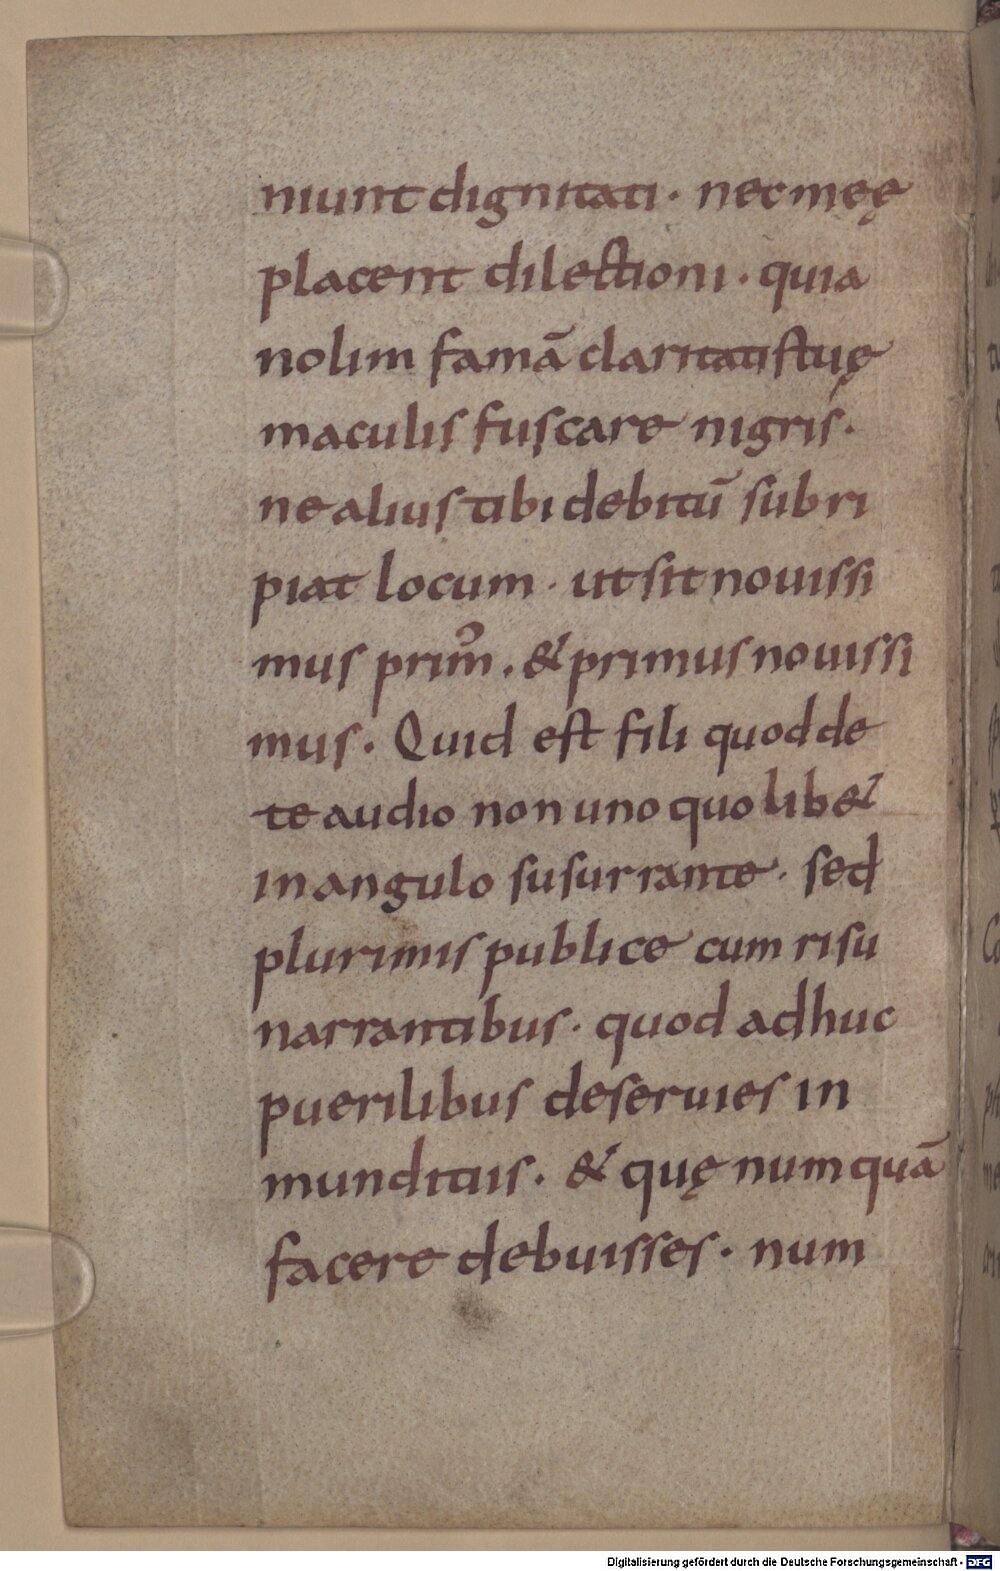 niunt dignitati · nec meę
placent dilectioni · quia
nolim famā claritatis tuę
maculis fuscare nigris ·
ne alius tibi debitū subri
piat locum · ut sit nouissi
mus prim᾿ · & primus nouissi
mus · Quid est fili quod de
te audio non uno quolib&
in angulo susurrante · sed
plurimis publice cum risu
narrantibus · quod adhuc
puerilibus deseruies in
munditiis · & quę numquā
facere debuisses · num
Digitalisierung gefördert durch die Deutsche Forschungsgemeinschaft - DFG